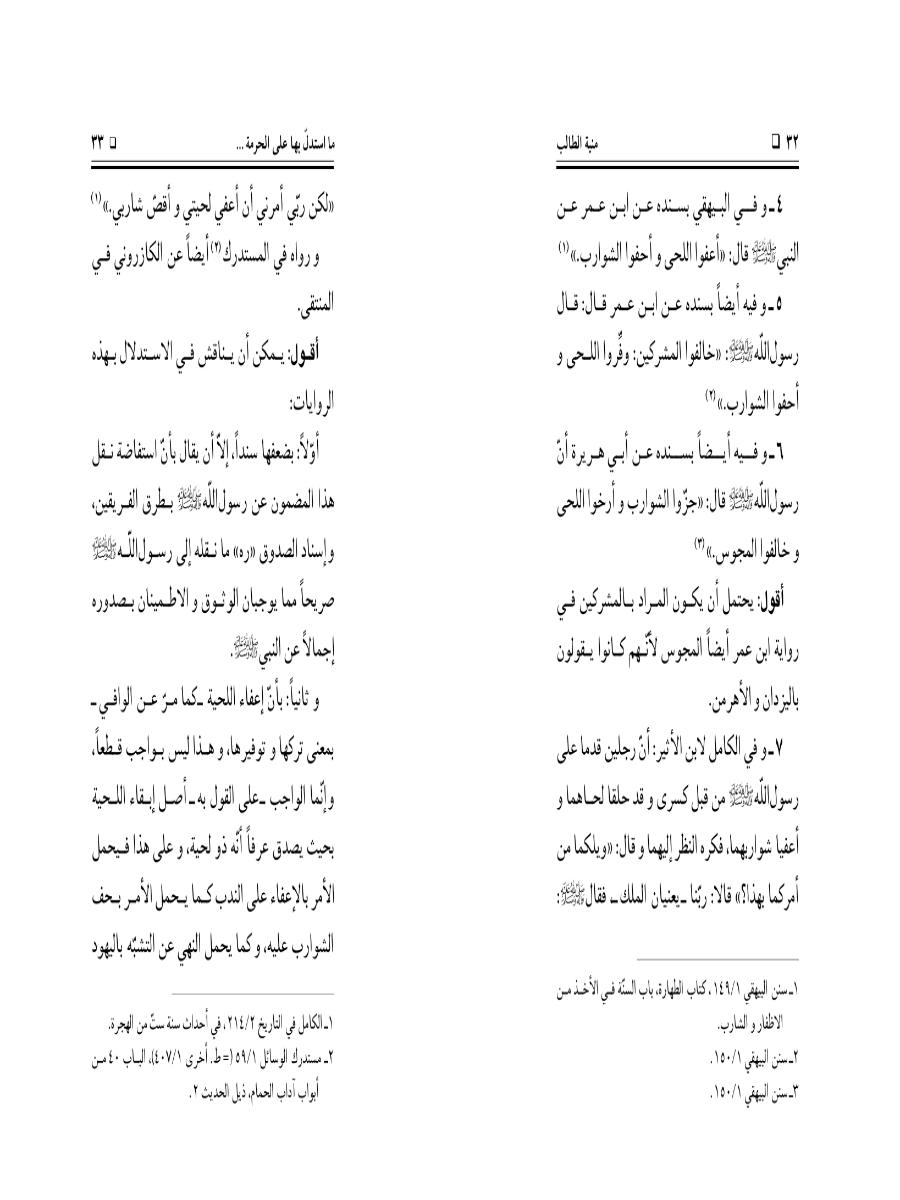 ٣٢ □ منية الطالب
٤ـ و فـي البـيهقي بسـنده عـن ابـن عـمر عـن
النبيﷺ قال: «أعفوا اللحى و أحفوا الشوارب.»(١)
٥ـ و فيه أيضاً بسنده عـن ابـن عـمر قـال: قـال
رسول‌اللّهﷺ: «خالفوا المشركين: وفِّروا اللـحى و
أحفوا الشوارب.»(٢)
٦ـ و فـيه أيـضاً بسـنده عـن أبـي هـريرة أنّ
رسول‌اللّهﷺ قال: «جزّوا الشوارب و أرخوا اللحى
و خالفوا المجوس.»(٣)
أقول: يحتمل أن يكـون المـراد بـالمشركين فـي
رواية ابن عمر أيضاً المجوس لأنّـهم كـانوا يـقولون
باليزدان و الأهرمن.
٧ـ و في الكامل لابن الأثير: أنّ رجلين قدما على
رسول‌اللّهﷺ من قبل كسرى و قد حلقا لحـاهما و
أعفيا شواربهما، فكره النظر إليهما و قال: «ويلكما من
أمركما بهذا؟» قالا: ربّنا ـ يعنيان الملك ـ، فقالﷺ:
١ـ سنن البيهقي ١/١٤٩، كتاب الطهارة، باب السنّة فـي الأخـذ مـن
الاظفار و الشارب.
٢ـ سنن البيهقي ١/١٥٠.
٣ـ سنن البيهقي ١/١٥٠.
ما استدلّ بها على الحرمة ... □ ٣٣
«لكن ربّي أمرني أن أعفي لحيتي و أقصّ شاربي.»(١)
و رواه في المستدرك(٢) أيضاً عن الكازروني فـي
المنتقى.
أقـول: يـمكن أن يـناقش فـي الاسـتدلال بـهذه
الروايات:
أوّلاً: بضعفها سنداً، إلاّ أن يقال بأنّ استفاضة نـقل
هذا المضمون عن رسول‌اللّهﷺ بـطرق الفـريقين،
وإسناد الصدوق «ره» ما نـقله إلى رسـول‌اللّـهﷺ
صريحاً مما يوجبان الوثـوق و الاطـمينان بـصدوره
إجمالاً عن النبيﷺ.
و ثانياً: بأنّ إعفاء اللحية ـ كما مـرّ عـن الوافي ـ
بمعنى تركها و توفيرها، و هـذا ليس بـواجب قـطعاً،
وإنّما الواجب ـ على القول به ـ أصـل إبـقاء اللـحية
بحيث يصدق عرفاً أنّه ذو لحية، و على هذا فـيحمل
الأمر بالإعفاء على الندب كـما يـحمل الأمـر بـحف
الشوارب عليه، و كما يحمل النهي عن التشبّه باليهود
١ـ الكامل في التاريخ ٢/٢١٤، في أحداث سنة ستّ من الهجرة.
٢ـ مستدرك الوسائل ١/٥٩ (= ط. أخرى ١/٤٠٧)، البـاب ٤٠ مـن
أبواب آداب الحمام، ذيل الحديث ٢.